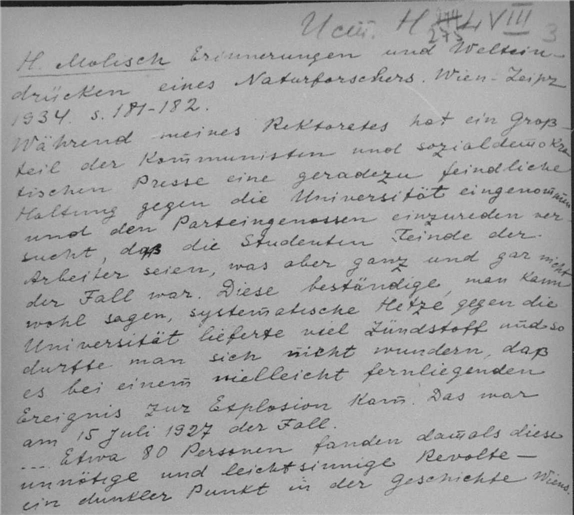 Ист. Н LVIII 3
275
H. Molisch Erinnerungen und Weltein-
drücken eines Naturforschers. Wien-Leipz
1934. s. 181-182.
Während meines Rektorates hat ein Groß-
teil der Kommunisten und sozialdemokra
tischen Presse eine geradezu feindliche
Haltung gegen die Universität eingenommen
und den Parteingenossen einzureden ver
sucht, daß die Studenten Feinde der
Arbeiter seien, was aber ganz und gar nicht
der Fall war. Diese beständige, man kann
wohl sagen, systematische Hetze gegen die
Universität lieferte viel Zündstoff und so
durfte man sich nicht wundern, daß
es bei einem vielleicht fernliegenden
Ereignis zur Explosion kam. Das war
am 15 Juli 1927 der Fall.
... Etwa 80 Personen fanden damals diese
unnötige und leichtsinnige Revolte –
ein dunkler Punkt in der Geschichte Wiens.